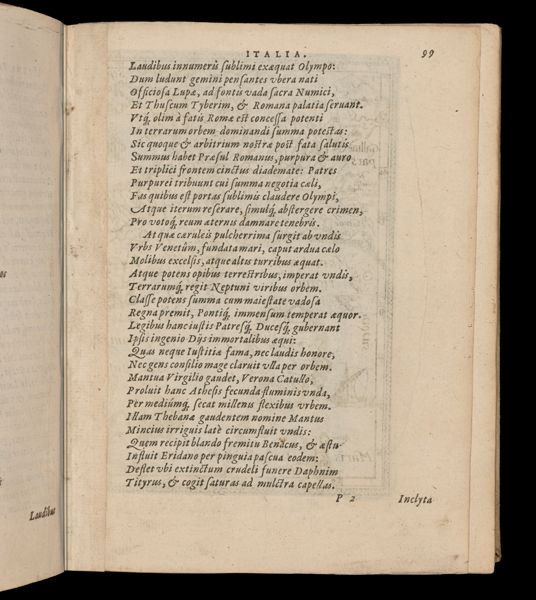 ITALIA. 99
Laudibus innumeris ſublimi exæquat Olympo:
Dum ludunt gemini penſantes vbera nati
Officioſa Lupæ, ad fontis vada ſacra Numici,
Et Thuſcum Tyberim, & Romana palatia ſeruant.
Vtq́, olim à fatis Romæ eſt conceſſa potenti
In terrarum orbem dominandi ſumma poteſtas:
Sic quoque & arbitrium noſtræ poſt fata ſalutis
Summus habet Præſul Romanus, purpura & auro
Et triplici frontem cinctus diademate: Patres
Purpurei tribuunt cui ſumma negotia cæli,
Fas quibus eſt portas ſublimis claudere Olympi,
Atque iterum reſerare, ſimulq́, abſtergere crimen,
Pro votoq́, reum æternis damnare tenebris.
At quæ cæruleis pulcherrima ſurgit ab vndis
Vrbs Venetûm, fundata mari, caput ardua cælo
Molibus excelſis, atque altis turribus æquat.
Atque potens opibus terreſtribus, imperat vndis,
Terrarumq́, regit Neptuni viribus orbem.
Claſſe potens ſumma cum maieſtate vadoſa
Regna premit, Pontiq́, immenſum temperat æquor.
Legibus hanc iuſtis Patresq́, Ducesq́, gubernant
Ipſis ingenio Dijs immortalibus æqui:
Quas neque Iuſtitiæ fama, nec laudis honore,
Nec gens conſilio mage claruit vlla per orbem.
Mantua Virgilio gaudet, Verona Catullo,
Proluit hanc Atheſis fecunda fluminis vnda,
Per mediumq́, ſecat millenis flexibus vrbem.
Illam Thebanæ gaudentem nomine Mantus
Mincius irriguis latè circumfluit vndis:
Quem recipit blando fremitu Benacus, & æſtu
Influit Eridano per pinguia paſcua eodem:
Deflet vbi extinctum crudeli funere Daphnim
Tityrus, & cogit ſaturas ad mulctra capellas.
P 2 Inclyta
Laudibus